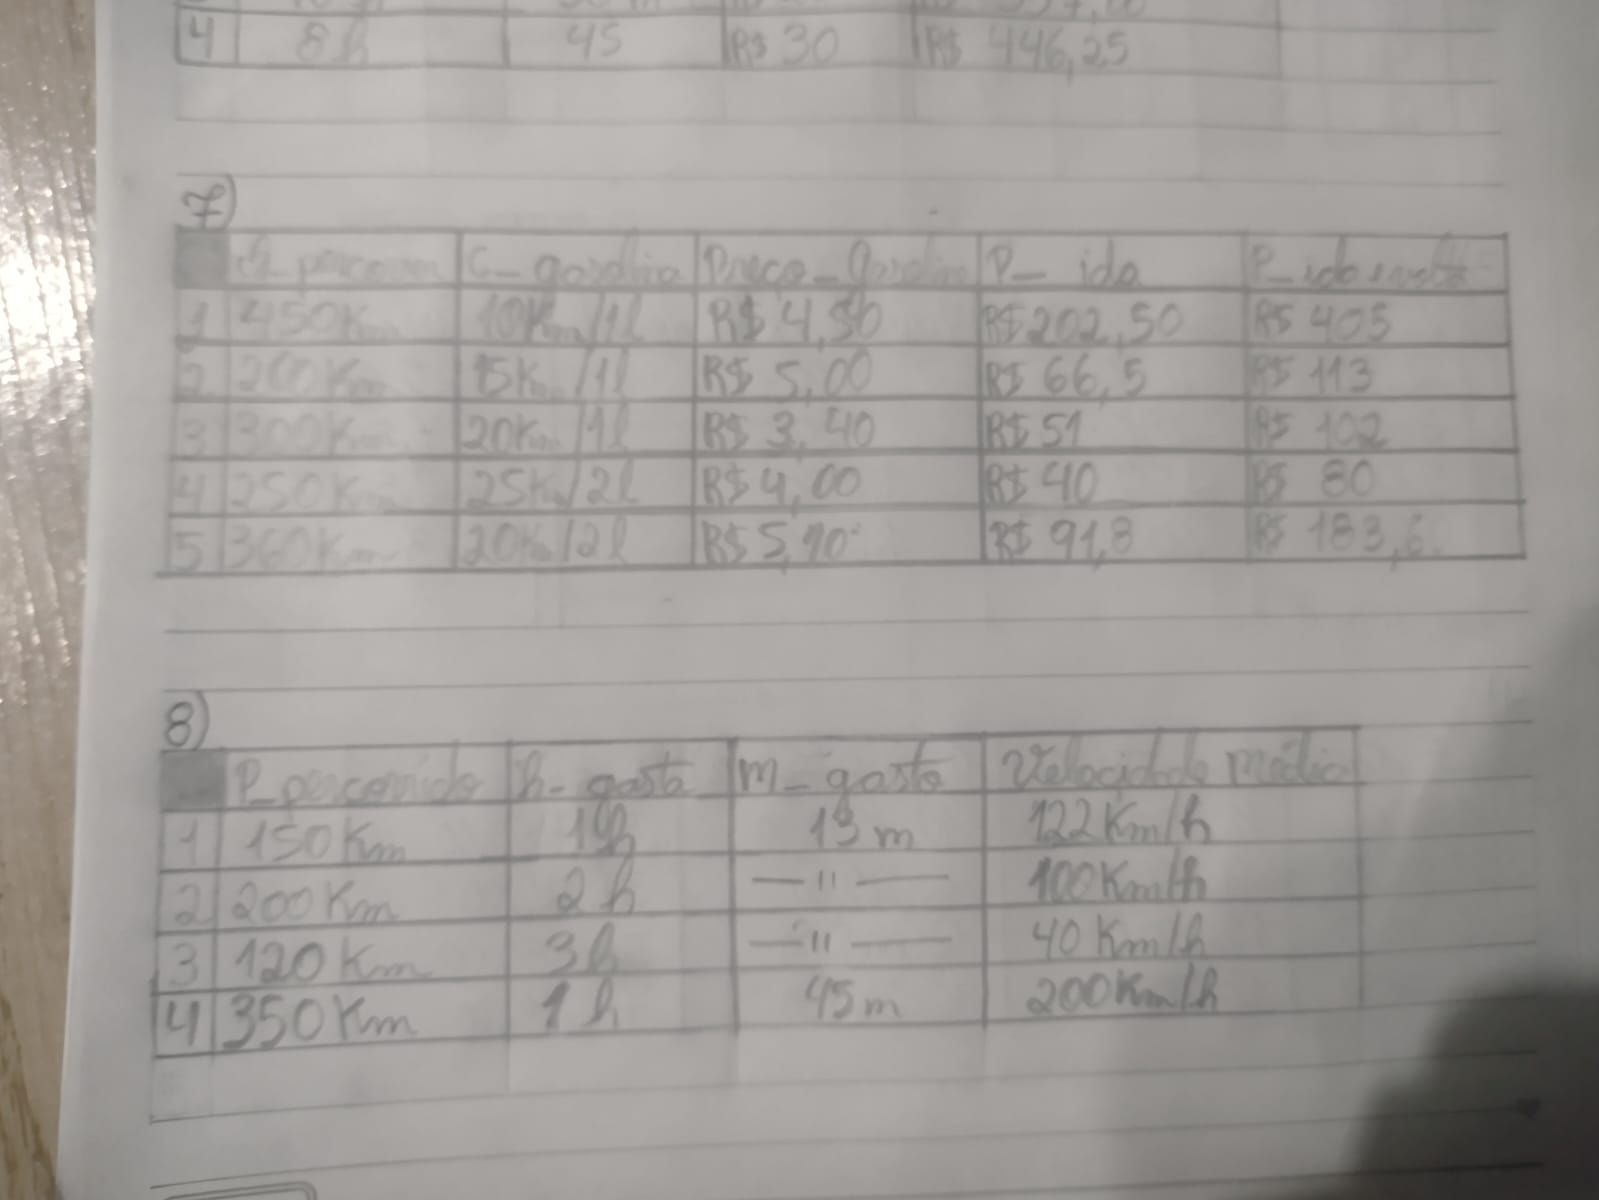 4 8h 45 R$ 30 R$ 446,25
7)
C_ gasolina Preço_ Gasolina P_ ida P_ ida e volta
1 450Km 10Km/1l R$ 4,50 R$ 202,50 R$ 405
2 200Km 15Km/1l R$ 5,00 R$ 66,5 R$ 113
3 300Km 20Km/1l R$ 3,40 R$ 51 R$ 102
4 250Km 25Km/2l R$ 4,00 R$ 40 R$ 80
5 360Km 20Km/2l R$ 5,10 R$ 91,8 R$ 183,6
8)
h_ gasto m_ gasto Velocidade média
1 150Km 1h m 122Km/h
2 200Km 2h —"— 100Km/h
3 120Km 3h —"— 40Km/h
4 350Km 1h 45m 200Km/h